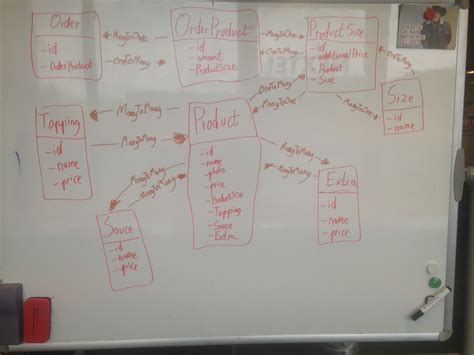 Order
-id
-OrderProduct
ManyToOne
OneToMany
OrderProduct
-id
-amount
-ProductSize
ManyToOne
OneToMany
ProductSize
-id
-additionalPrice
-Product
-Size
OneToMany
ManyToOne
Size
-id
-name
OneToMany
ManyToOne
Topping
-id
-name
-price
ManyToMany
ManyToMany
Product
-id
-name
-photo
-price
-ProductSize
-Topping
-Sauce
-Extra
ManyToMany
ManyToMany
Extra
-id
-name
-price
ManyToMany
ManyToMany
Sauce
-id
-name
-price